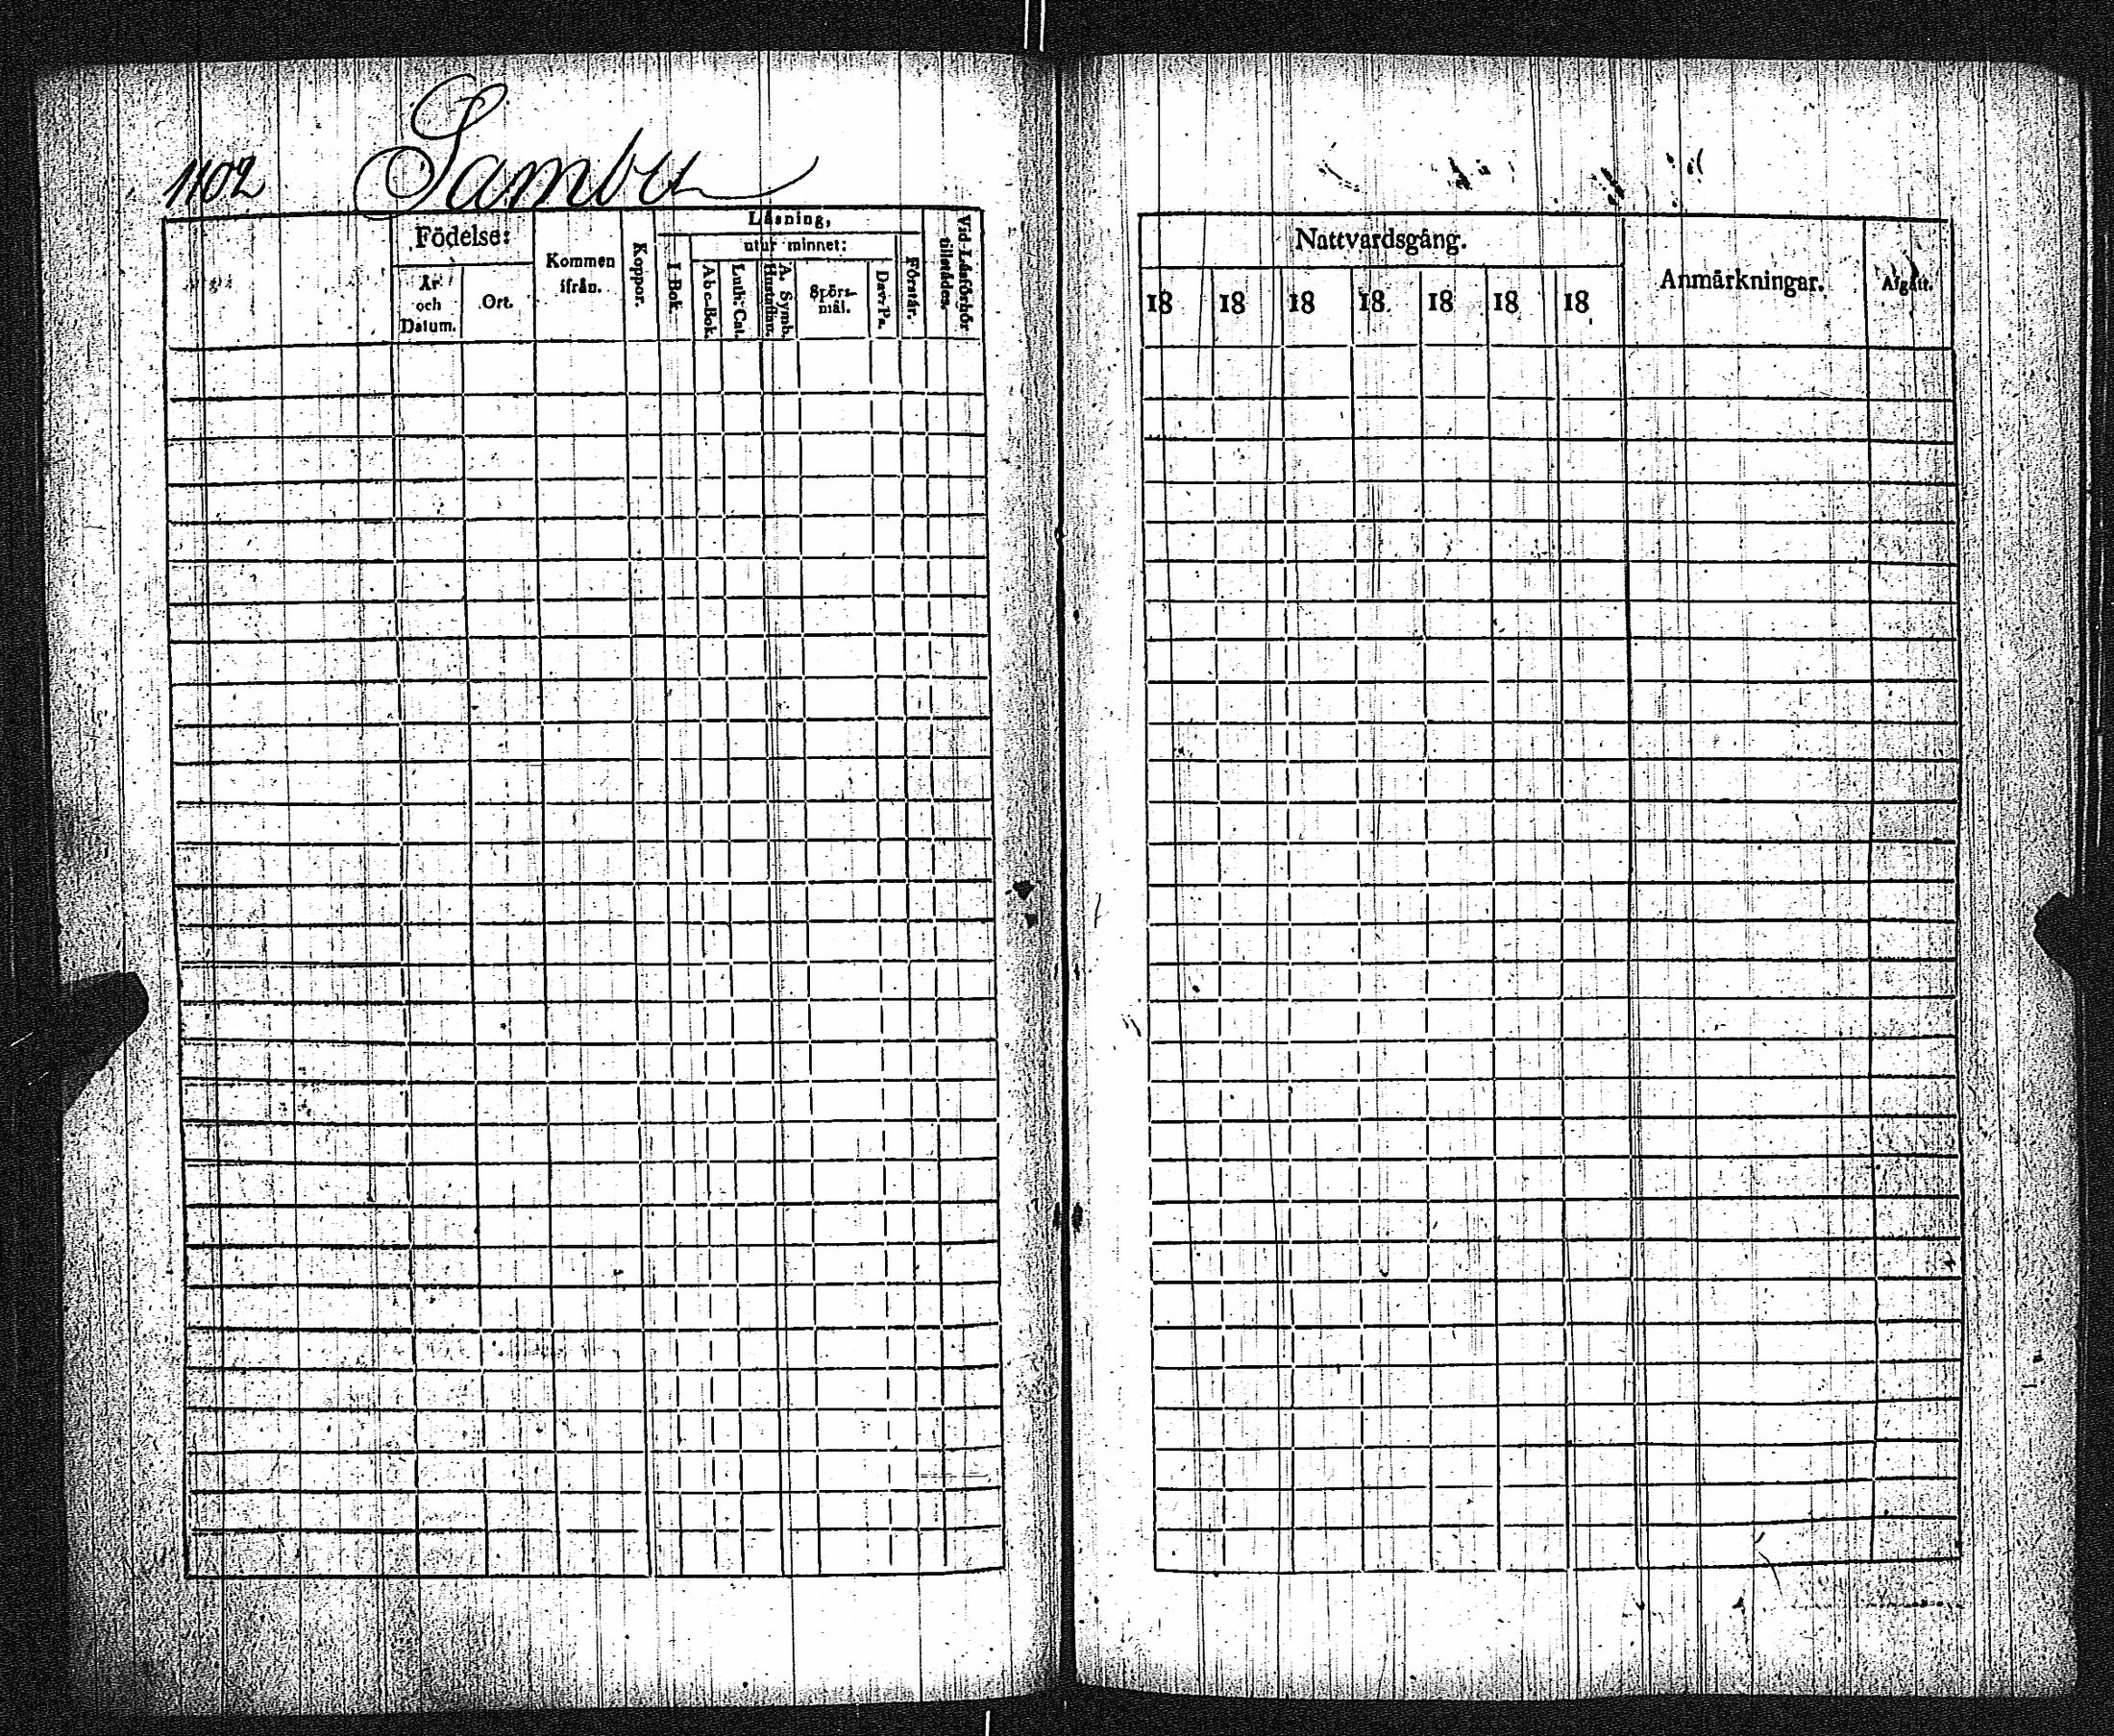 1102 Sambu
Födelse:
År och Datum.
Ort.
Kommen ifrån.
Koppor.
Läsning,
utur minnet:
I Bok.
Abc-Bok.
Luth. Cat.
A. Symb. Hustaflan.
Spörs-mål.
Dav. Ps.
Förstår.
Vid Läsförhör tillstädes.
Nattvardsgång.
18 18 18 18 18 18 18
Anmärkningar.
Afgått.